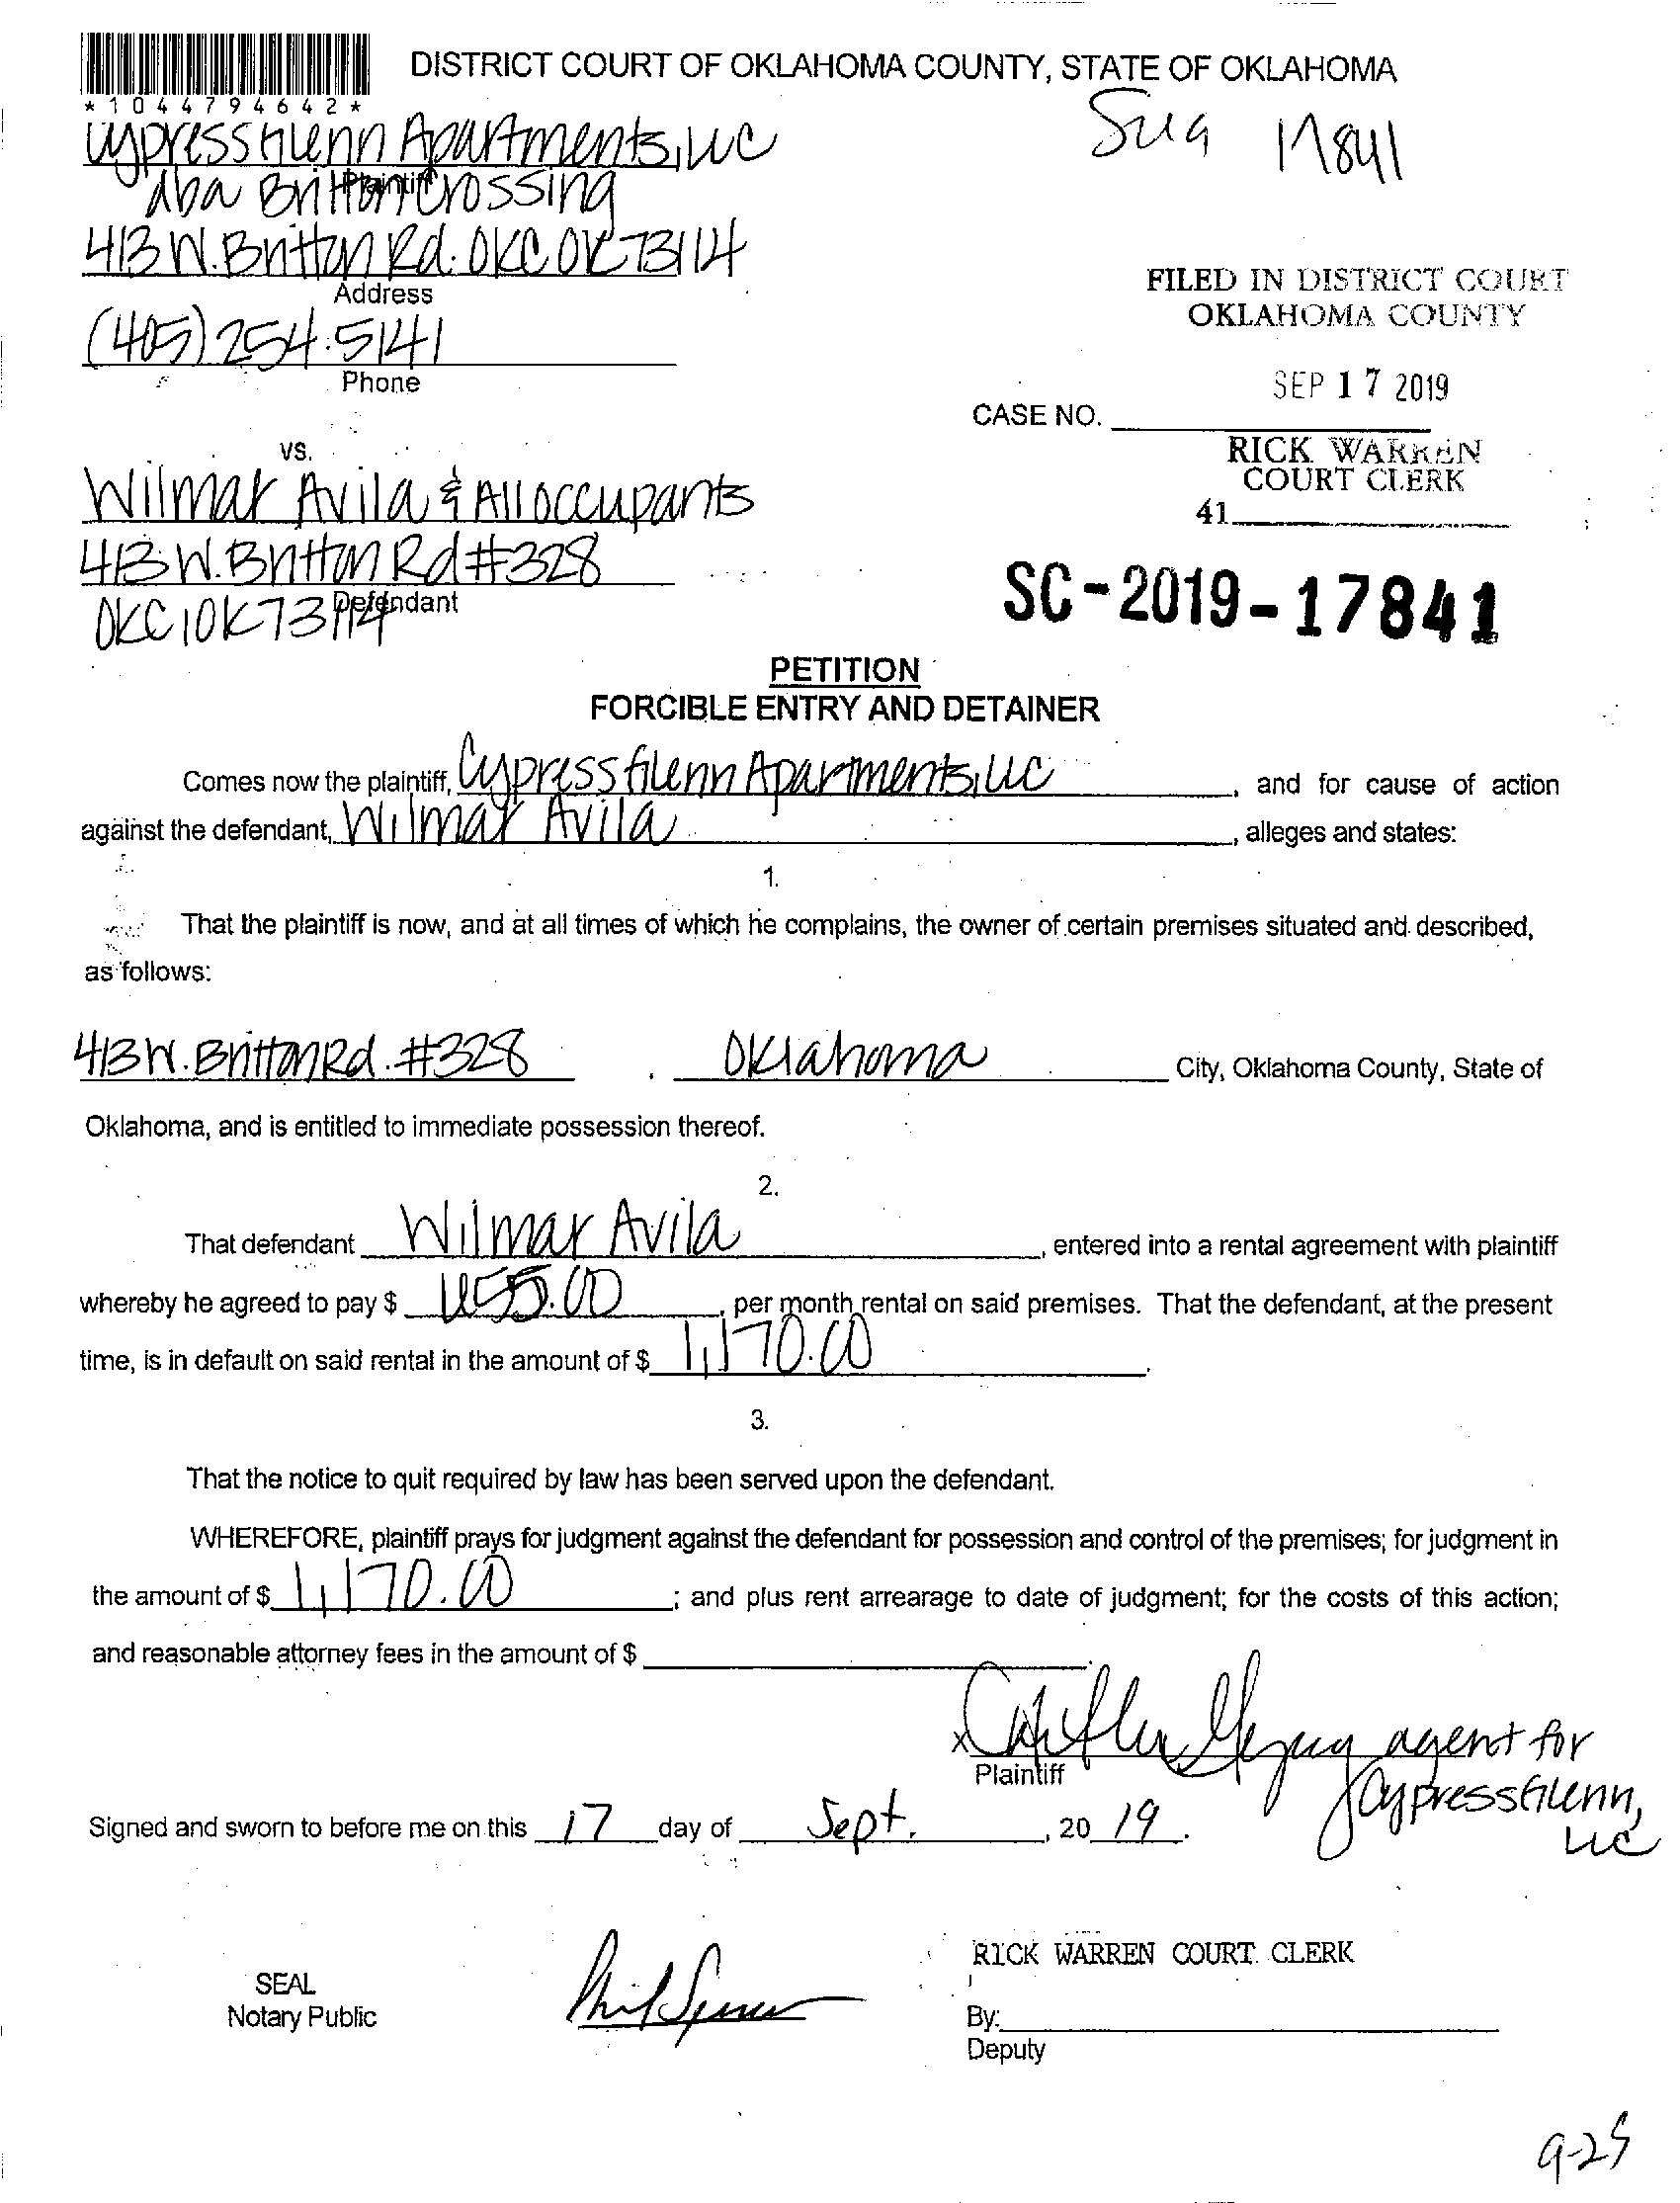 DISTRICT COURT OF OKLAHOMA COUNTY, STATE OF OKLAHOMA
*1044794642*
Cypress Glenn Apartments, LLC
17841
Plaintiff
dba Britton Crossing
413 W. Britton Rd. OKC OK 73114
Address
(405) 254-5141
Phone
FILED IN DISTRICT COURT
OKLAHOMA COUNTY
SEP 17 2019
CASE NO.
RICK WARREN
COURT CLERK
41
vs.
Wilmar Avila & All occupants
413 W. Britton Rd #328
Defendant
OKC, OK 73114
SC-2019-17841
PETITION
FORCIBLE ENTRY AND DETAINER
Comes now the plaintiff, Cypress Glenn Apartments, LLC, and for cause of action
against the defendant, Wilmar Avila, alleges and states:
1.
That the plaintiff is now, and at all times of which he complains, the owner of certain premises situated and described,
as follows:
413 W. Britton Rd. #328, Oklahoma City, Oklahoma County, State of
Oklahoma, and is entitled to immediate possession thereof.
2.
That defendant Wilmar Avila, entered into a rental agreement with plaintiff
whereby he agreed to pay $ 655.00, per month rental on said premises. That the defendant, at the present
time, is in default on said rental in the amount of $ 1,170.00.
3.
That the notice to quit required by law has been served upon the defendant.
WHEREFORE, plaintiff prays for judgment against the defendant for possession and control of the premises; for judgment in
the amount of $ 1,170.00; and plus rent arrearage to date of judgment; for the costs of this action;
and reasonable attorney fees in the amount of $
x agent for
Plaintiff
Cypress Glenn,
LLC
Signed and sworn to before me on this 17 day of Sept., 20 19.
RICK WARREN COURT CLERK
SEAL
Notary Public
By:
Deputy
9-25